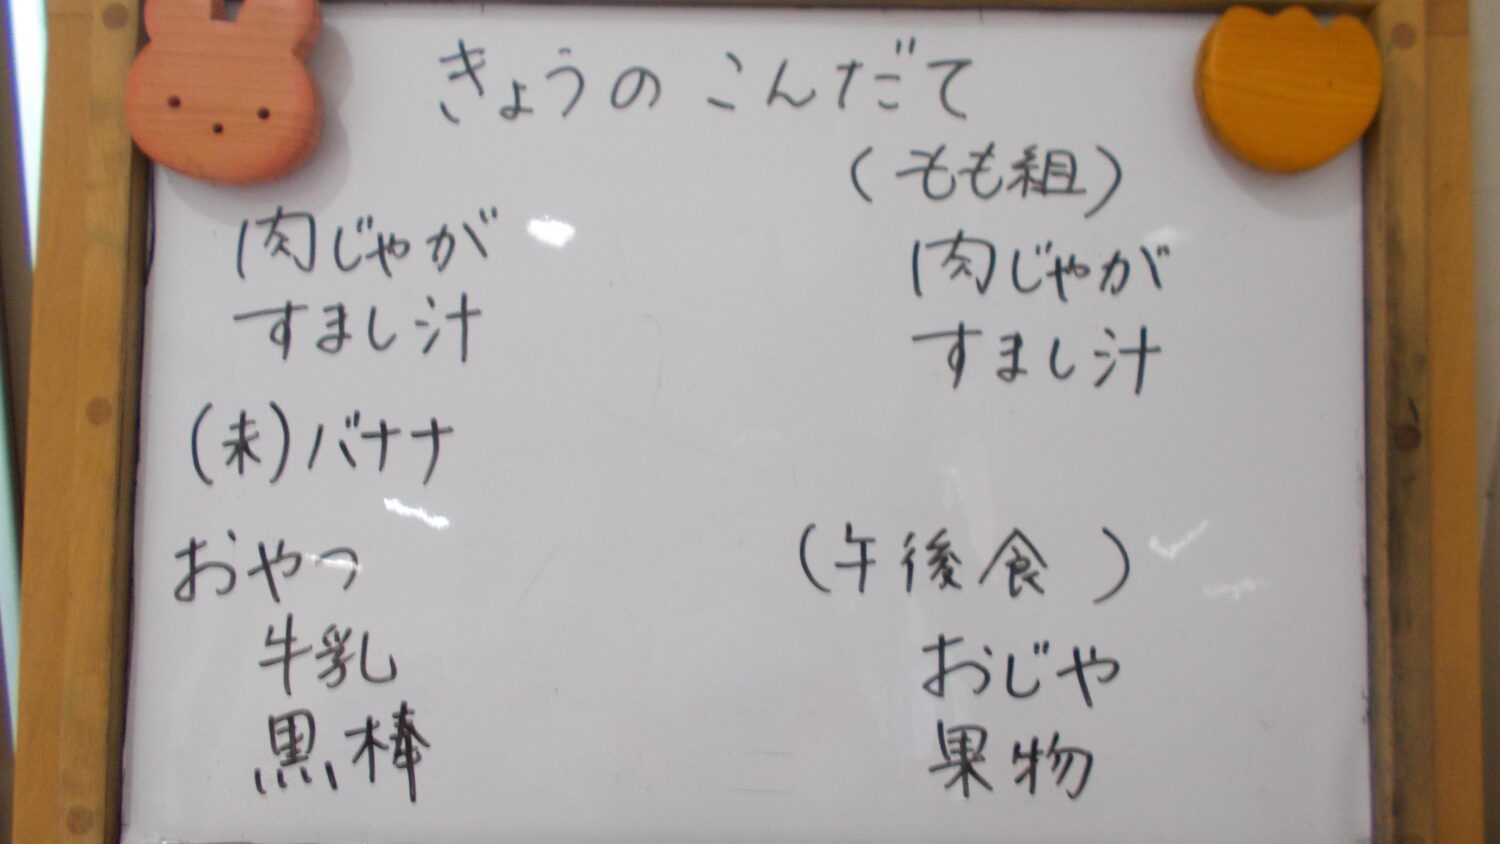 きょうの こんだて
肉じゃが
すまし汁
(未)バナナ
おやつ
牛乳
黒棒
(もも組)
肉じゃが
すまし汁
(午後食 )
おじや
果物